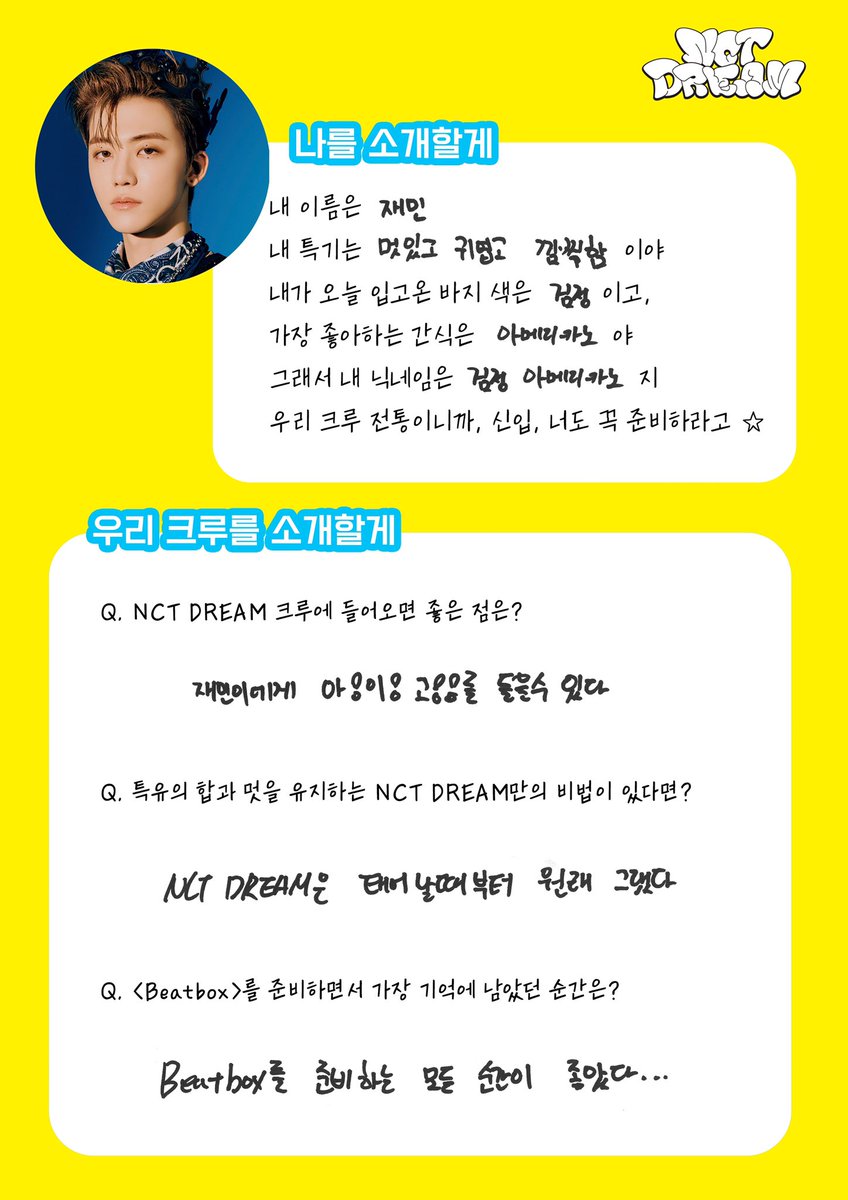 NCT
DREAM
나를 소개할게
내 이름은 재민
내 특기는 멋있고 귀엽고 깜찍함 이야
내가 오늘 입고온 바지 색은 검정 이고,
가장 좋아하는 간식은 아메리카노 야
그래서 내 닉네임은 검정 아메리카노 지
우리 크루 전통이니까, 신입, 너도 꼭 준비하라고 ☆
우리 크루를 소개할게
Q. NCT DREAM 크루에 들어오면 좋은 점은?
재민이에게 아옹이옹 고옹옹를 들을수 있다
Q. 특유의 합과 멋을 유지하는 NCT DREAM만의 비법이 있다면?
NCT DREAM은 태어날때부터 원래 그랬다
Q. <Beatbox>를 준비하면서 가장 기억에 남았던 순간은?
Beatbox를 준비하는 모든 순간이 좋았다...